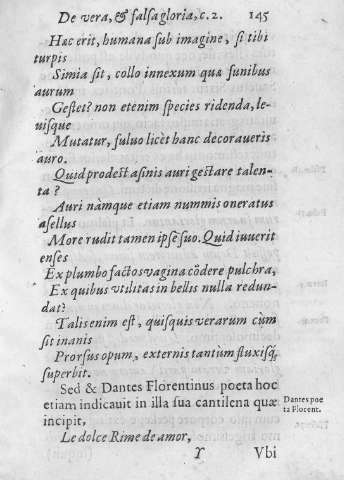 De vera, & falsa gloria, c. 2. 145
Hæc erit, humana sub imagine, si tibi
turpis
Simia sit, collo innexum quæ funibus
aurum
Gestet? non etenim species ridenda, le-
uisque
Mutatur, fuluo licèt hanc decoraueris
auro.
Quid prodest asinis auri gestare talen-
ta?
Auri nàmque etiam nummis oneratus
asellus
More rudit tamen ipse suo. Quid iuuerit
enses
Ex plumbo factos vagina cōdere pulchra,
Ex quibus vtilitas in bellis nulla redun-
dat?
Talis enim est, quisquis verarum cùm
sit inanis
Prorsus opum, externis tantùm fluxisq́;
superbit.
Sed & Dantes Florentinus poeta hoc
etiam indicauit in illa sua cantilena quæ
incipit,
Dantes poe
ta Florent.
Le dolce Rime de amor,
Y Vbi